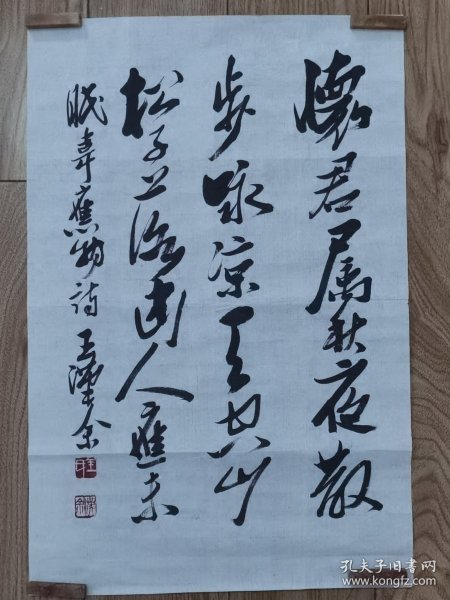 懷君属秋夜散
步咏凉天空山
松子落幽人應未
眠韋應物詩 王
孔夫子旧书网
www.kongfz.com